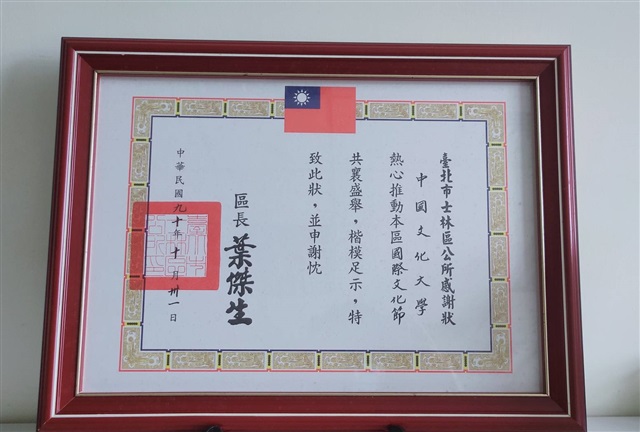 臺北市士林區公所感謝狀
中國文化大學
熱心推動本區國際文化節
共襄盛舉，楷模足示，特
致此狀，並申謝忱
區長 葉傑生
中華民國九十年十月卅一日